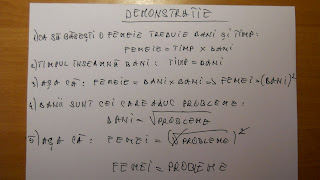 DEMONSTRAȚIE
1) CA SĂ GĂSEȘTI O FEMEIE TREBUIE BANI ȘI TIMP:
FEMEIE = TIMP x BANI
2) TIMPUL ÎNSEAMNĂ BANI: TIMP = BANI
3) AȘA CĂ: FEMEIE = BANI x BANI => FEMEI = (BANI)²
4) BANII SUNT CEI CARE ADUC PROBLEME:
BANI = √PROBLEME
5) AȘA CĂ: FEMEI = (√PROBLEME)²
FEMEI = PROBLEME